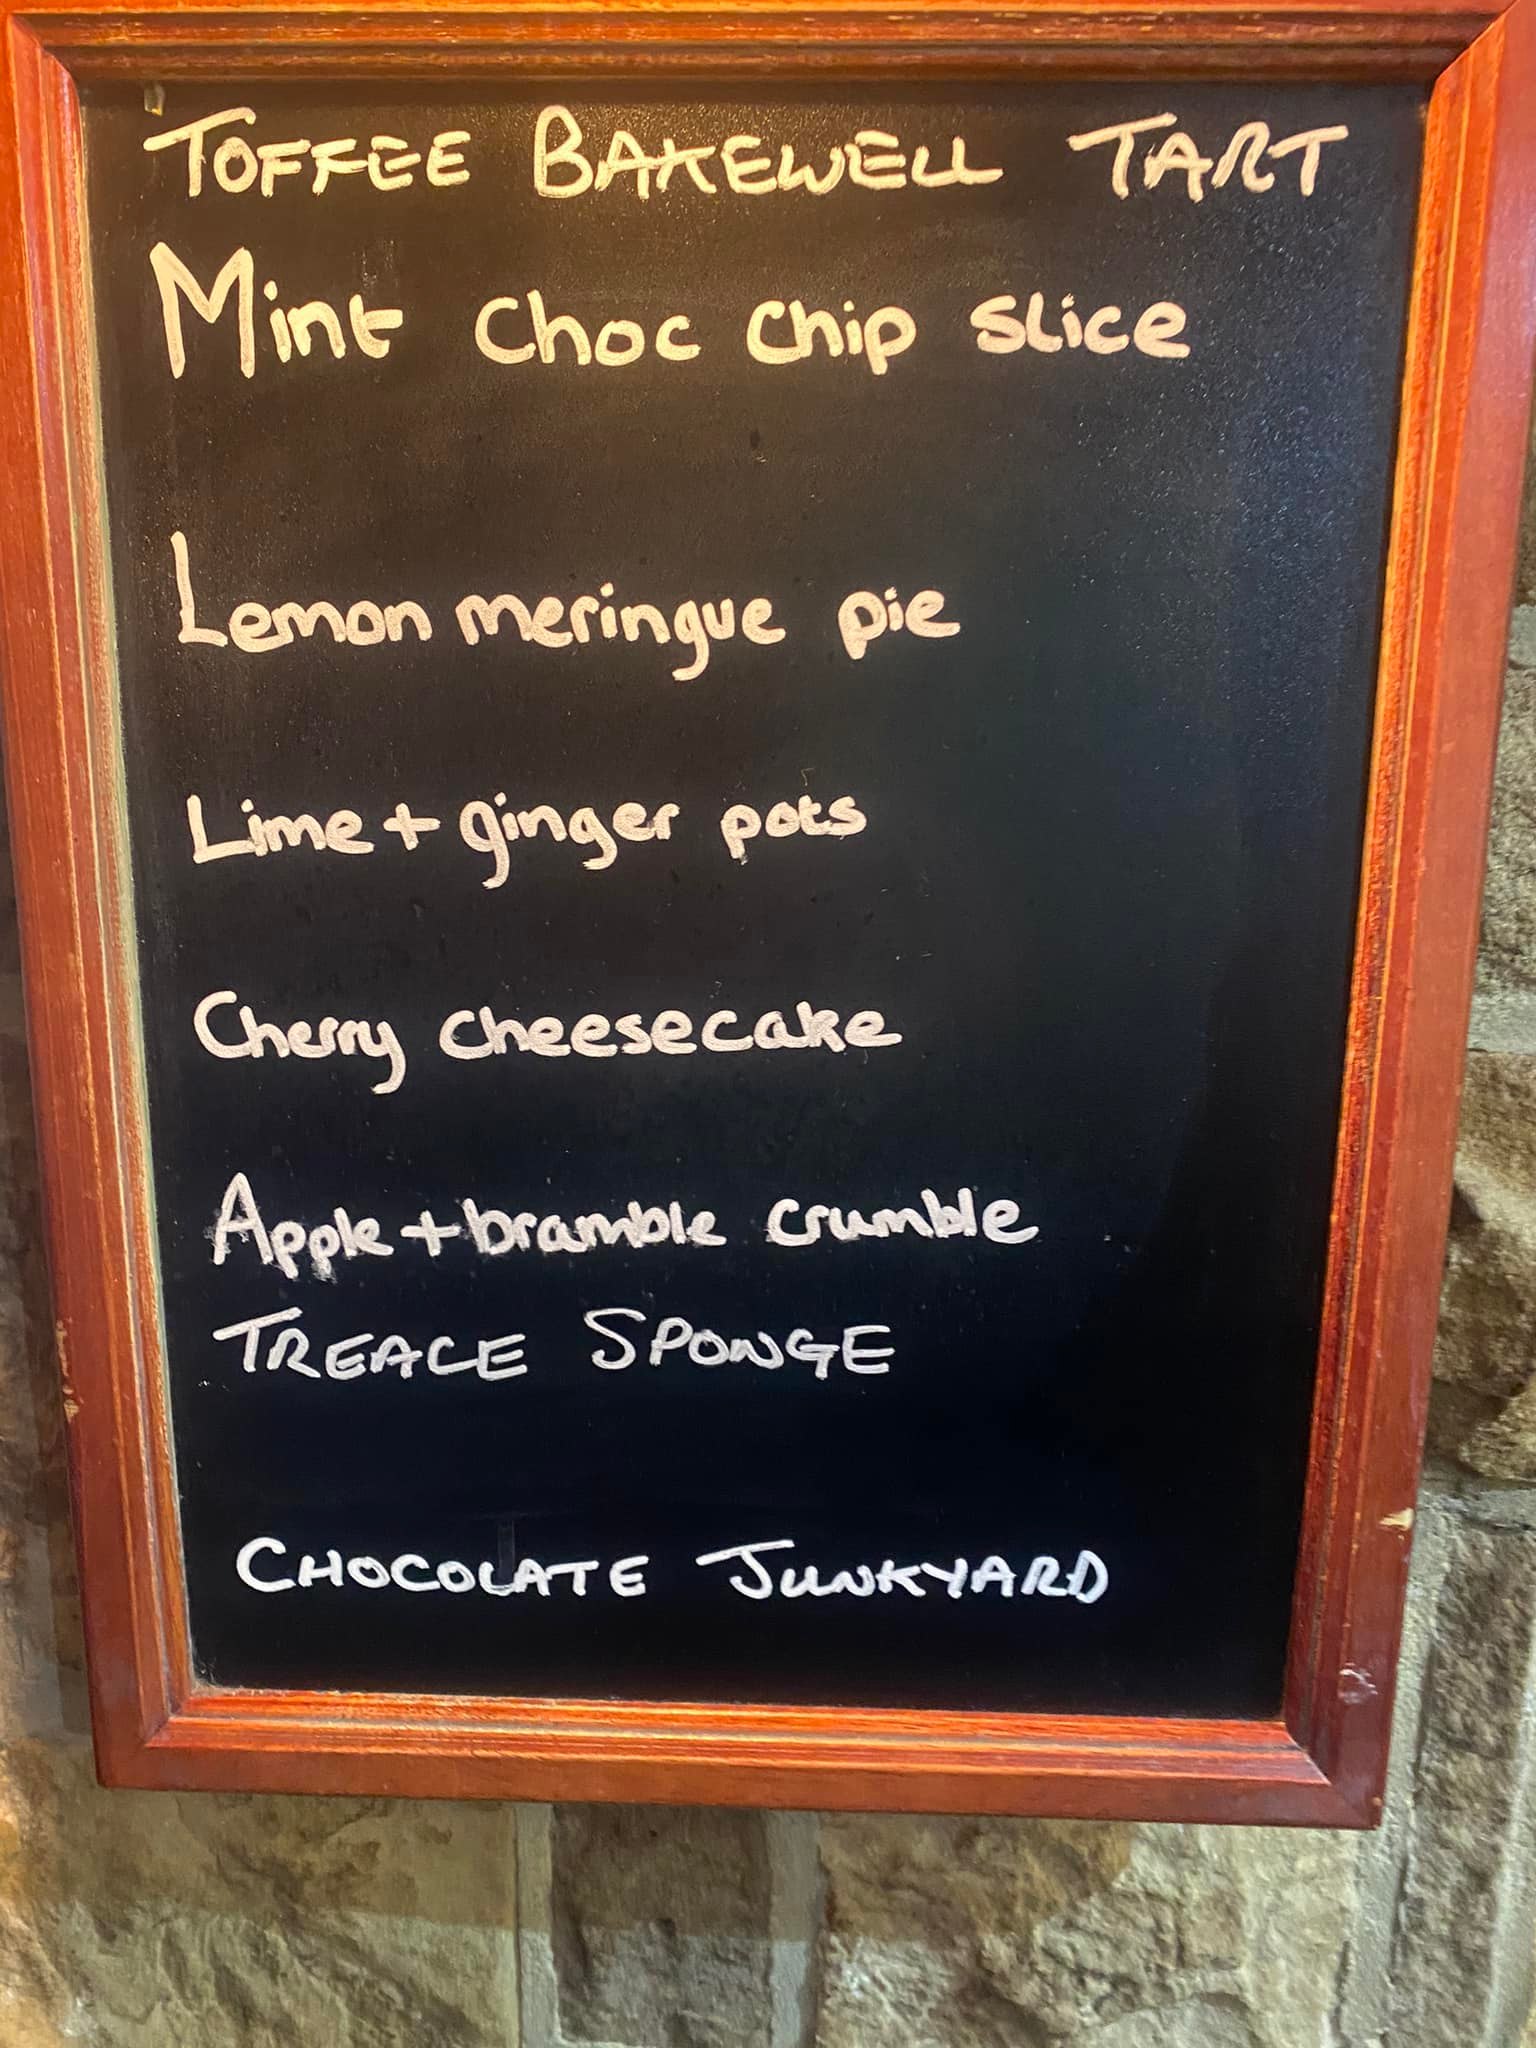 TOFFEE BAKEWELL TART
Mint choc chip slice
Lemon meringue pie
Lime + ginger pots
Cherry cheesecake
Apple + bramble crumble
TREACE SPONGE
CHOCOLATE JUNKYARD